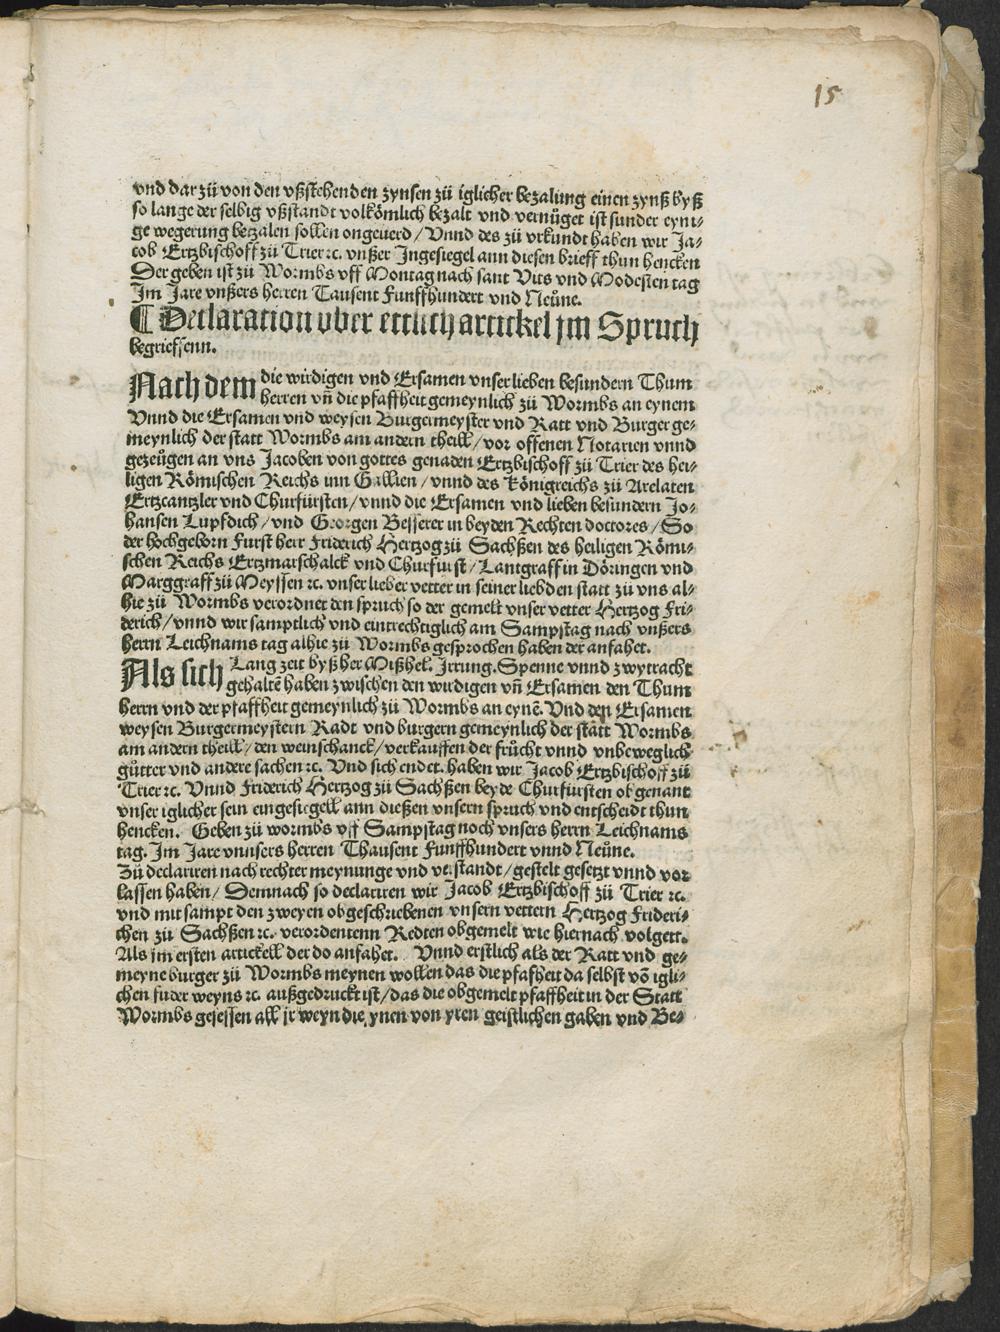 15
vnd dar zü von den vßstehenden zynsen zü iglicher bezalung einen zynß byß
so lange der selbig vßstandt volkömlich bezalt vnd vernüget ist sunder eyni-
ge wegerung bezalen sollen ongeuerd / Vnnd des zü vrkundt haben wir Ja-
cob Ertzbischoff zü Trier ꝛc. vnßer Jngesiegel ann diesen brieff thun hencken
Der geben ist zü Wormbs vff Montag nach sant Vits vnd Modesten tag
Jm Jare vnßers herren Tausent Funffhundert vnd Neüne.
¶ Declaracion vber ettlich artickel jm Spruch
begrieffenn.
Nach dem die wirdigen vnd Ersamen vnser lieben besundern Thum
herren vñ die pfaffheit gemeynlich zü Wormbs an eynem
Vnnd die Ersamen vnd weysen Burgermeyster vnd Ratt vnd Burger ge-
meynlich der statt Wormbs am andern theill / vor offenen Notarien vnnd
gezeügen an vns Jacoben von gottes genaden Ertzbischoff zü Trier des hei-
ligen Römischen Reichs inn Gallien / vnnd des königreichs zü Arelaten
Ertzcantzler vnd Churfürsten / vnnd die Ersamen vnd lieben besundern Jo-
hansen Lupfdich / vnd Georgen Besserer in beyden Rechten doctores / So
der hochgeborn Furst herr Friderich Hertzog zü Sachßen des heiligen Römi-
schen Reichs Ertzmarschalck vnd Churfurst / Lantgraff in Döringen vnd
Marggraff zü Meyssen ꝛc. vnser lieber vetter in seiner liebden statt zü vns al-
hie zü Wormbs verordnet den spruch so der gemelt vnser vetter Hertzog Fri-
derich / vnnd wir samptlich vnd eintrechtiglich am Sampstag nach vnßers
herrn Leichnams tag alhie zü Wormbs gesprochen haben der anfahet.
Als sich Lang zeit byßher Mißhel. Jrrung. Spenne vnnd zwytracht
gehaltẽ haben zwischen den wirdigen vñ Ersamen den Thum
herrn vnd der pfaffheit gemeynlich zü Wormbs an eynẽ. Vnd den Ersamen
weysen Burgermeystern Radt vnd burgern gemeynlich der statt Wormbs
am andern theill / den weinschanck / verkauffen der frücht vnnd vnbeweglich
gütter vnd andere sachen ꝛc. Vnd sich endet. haben wir Jacob Ertzbischoff zü
Trier ꝛc. Vnnd Friderich Hertzog zü Sachßen beyde Churfürsten obgenant
vnser iglicher sein eingesiegell ann dießen vnsern spruch vnd entscheidt thun
hencken. Geben zü wormbs vff Sampstag noch vnsers herrn Leichnams
tag. Jm Jare vnnsers herren Thausent Funffhundert vnnd Neüne.
Zü declariren nach rechter meynunge vnd verstandt / gestelt gesetzt vnnd vor
lassen haben / Demnach so declariren wir Jacob Ertzbischoff zü Trier ꝛc.
vnd mit sampt den zweyen obgeschriebenen vnsern vettern Hertzog Frideri-
chen zü Sachßen ꝛc. verordentenn Redten obgemelt wie hiernach volgett.
Als jm ersten artickell der do anfahet. Vnnd erstlich als der Ratt vnd ge-
meyne burger zü Wormbs meynen wollen das die pfafheit da selbst võ igli-
chen fuder weyns ꝛc. außgedruckt ist / das die obgemelt pfaffheit in der Statt
Wormbs gesessen all jr weyn die ynen von yren geistlichen gaben vnd Be-